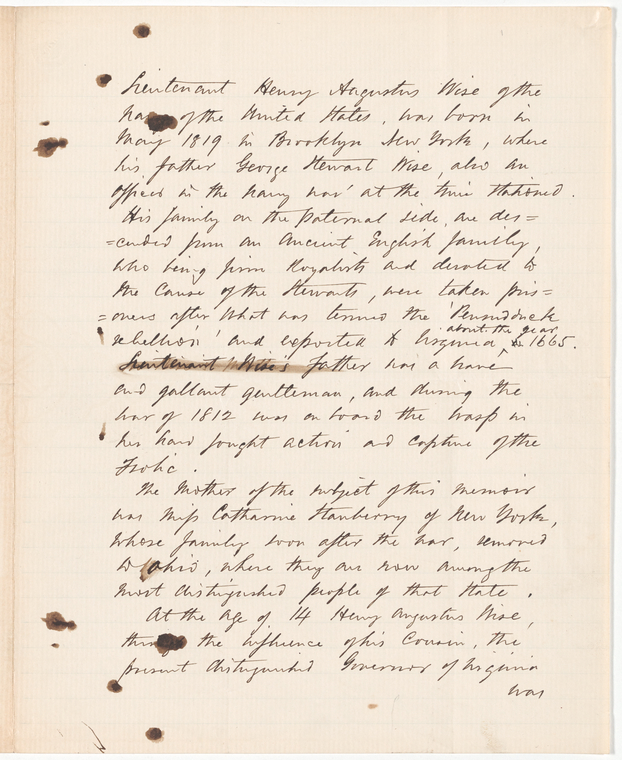 Lieutenant Henry Augustus Wise of the
Navy of the United States, was born in
May 1819 in Brooklyn New York, where
his father George Stewart Wise, also an
officer in the navy was at the time stationed.
His family on the paternal side, are des=
=cended from an Ancient English family,
who being firm Royalists and devoted to
the cause of the Stewarts, were taken pris=
=oners after what was termed the
rebellion' and exported to Virginia about the year 1665.
Lieutenant Wise's father was a brave
and gallant gentleman, and during the
war of 1812 was on board the Wasp in
her hard fought action and capture of the
Frolic.
The Mother of the subject of this memoir
was Miss Catharine Stanberry of New York,
whose family soon after the war, removed
to Ohio, where they are now among the
most distinguished people of that State.
At the age of 14 Henry Augustus Wise,
through the influence of his Cousin, the
present distinguished Governor of Virginia
was